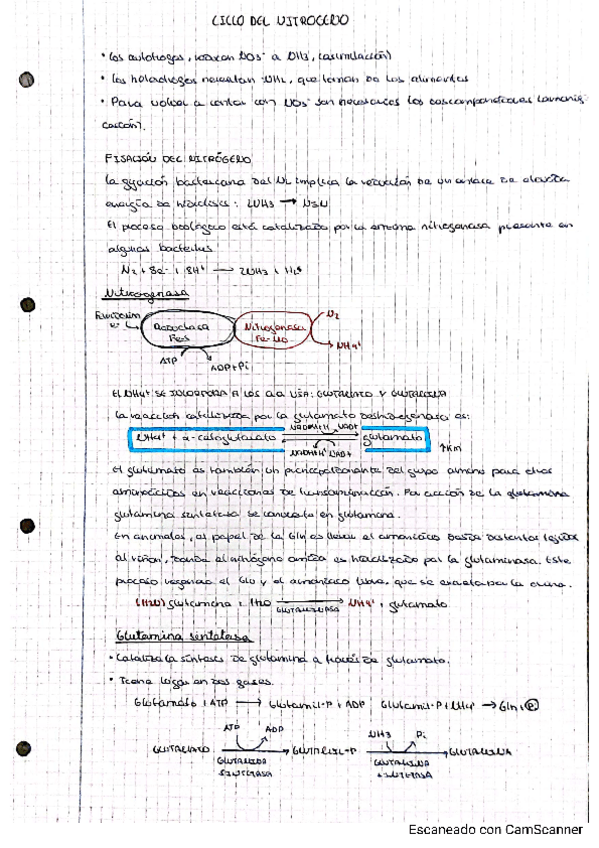 CICLO DEL NITROGENO
• Los autótrofos, reducen NO3⁻ a NH3, (asimilación)
• Los heterótrofos necesitan -NH2, que toman de los alimentos
• Para volver a contar con NO3⁻ son necesarios los descomponedores
FIJACIÓN DEL NITRÓGENO
La fijación bacteriana del N2 implica la reducción de un enlace de elevada
energía de : 2NH3 → N≡N
El proceso biológico está catalizado por la enzima nitrogenasa presente en
algunas bacterias
N2 + 8e⁻ + 8H⁺ → 2NH3 + H2
Nitrogenasa
e⁻
Reductasa
Fe-S
Nitrogenasa
Fe-Mo
N2
NH4⁺
ATP
ADP+Pi
El NH4⁺ se incorpora a los aa vía: glutamato y glutamina
La reacción catalizada por la glutamato deshidrogenasa es:
NH4⁺ + α-cetoglutarato glutamato
NADPH+H⁺ NADP⁺
NADH+H⁺ NAD⁺
↑Km
El glutamato es también un del grupo amino para otros
aminoácidos en reacciones de transaminación. Por acción de la glutamina
glutamina sintetasa se convierte en glutamina.
En animales, el papel de la Gln es llevar el amoniaco desde distintos tejidos
al riñón, donde el nitrógeno amida es hidrolizado por la glutaminasa. Este
proceso regenera el Glu y el amoniaco libre, que se excreta por la orina.
(H2O) glutamina + H2O → NH4⁺ + glutamato
GLUTAMINASA
Glutamina sintetasa
• Cataliza la síntesis de glutamina a través de glutamato.
• Tiene lugar en dos fases.
Glutamato + ATP → Glutamil-P + ADP Glutamil-P + NH4⁺ → Gln +
ATP ADP NH3 Pi
GLUTAMATO → GLUTAMIL-P → GLUTAMINA
GLUTAMINA GLUTAMINA
SINTETASA SINTETASA
Escaneado con CamScanner